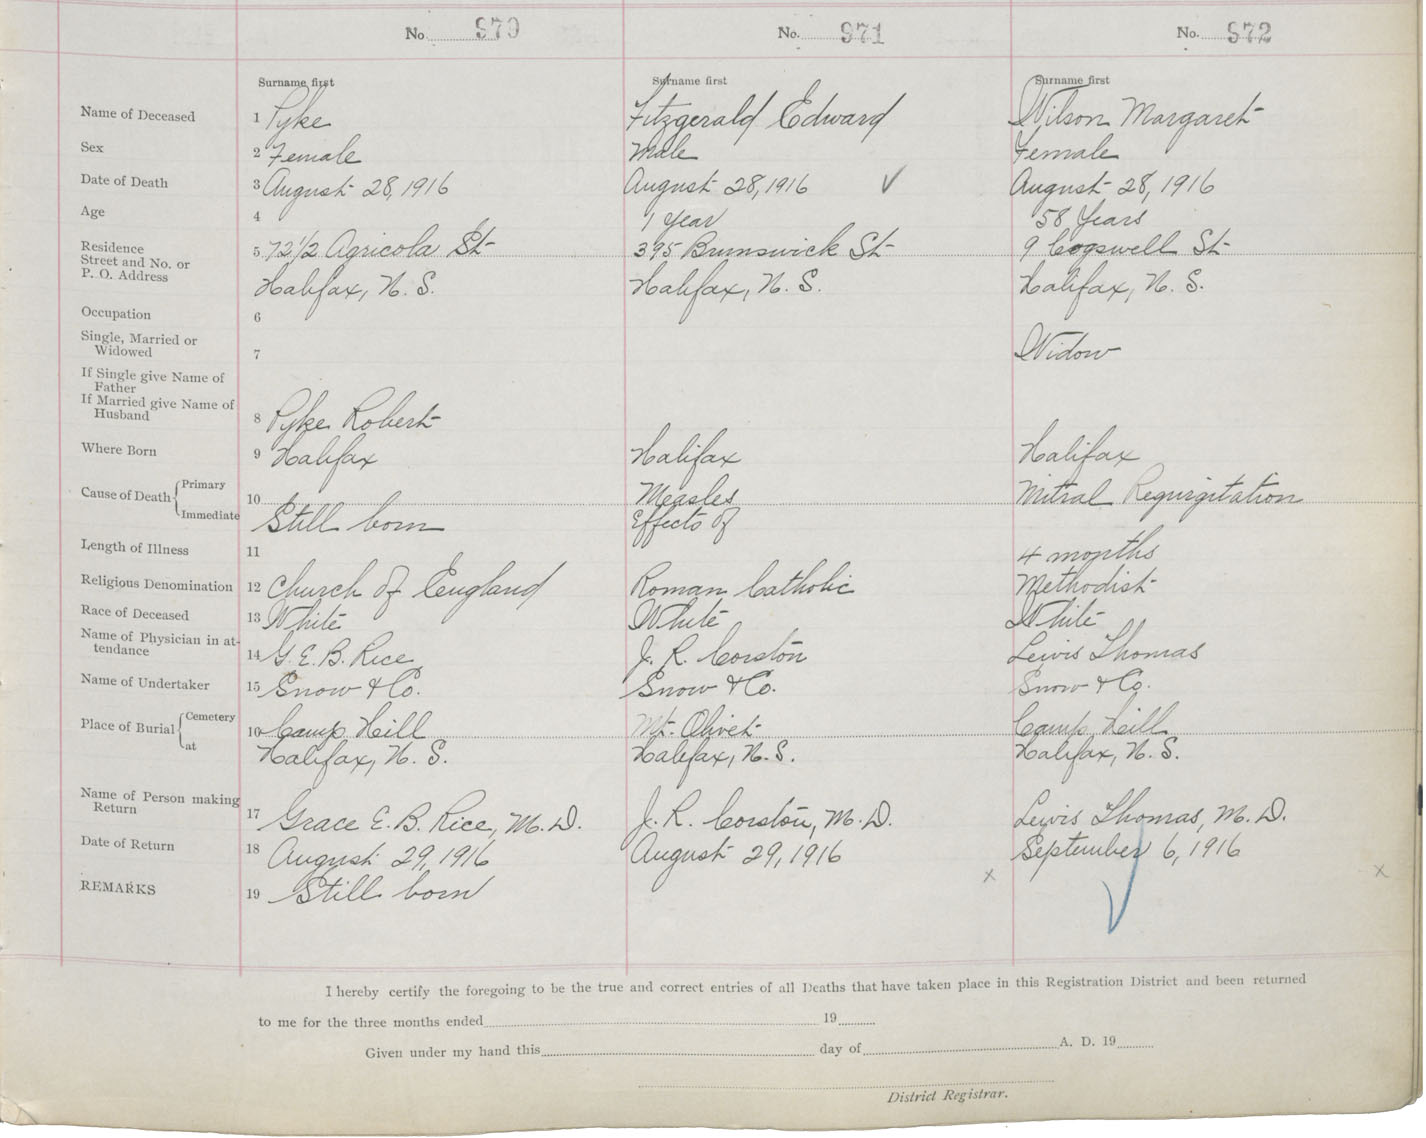 No. 970 No. 971 No. 972
Surname first Surname first Surname first
Name of Deceased 1 Pyke Fitzgerald Edward Wilson Margaret
Sex 2 Female Male Female
Date of Death 3 August 28, 1916 August 28, 1916 ✓ August 28, 1916
Age 4 1 Year 58 Years
Residence 5 72 1/2 Agricola St 395 Brunswick St 9 Cogswell St
Street and No. or
P. O. Address Halifax, N. S. Halifax, N. S. Halifax, N. S.
Occupation 6
Single, Married or
Widowed 7 Widow
If Single give Name of
Father
If Married give Name of
Husband 8 Pyke Robert
Where Born 9 Halifax Halifax Halifax
Cause of Death { Primary 10 Measles Mitral Regurgitation
Immediate Still born Effects of
Length of Illness 11 4 months
Religious Denomination 12 Church of England Roman Catholic Methodist
Race of Deceased 13 White White White
Name of Physician in at-
tendance 14 G. E. B. Rice J. R. Corston Lewis Thomas
Name of Undertaker 15 Snow & Co. Snow & Co. Snow & Co.
Place of Burial { Cemetery 10 Camp Hill Mt. Olivet Camp Hill
at Halifax, N. S. Halifax, N. S. Halifax, N. S.
Name of Person making
Return 17 Grace E. B. Rice, M. D. J. R. Corston, M. D. Lewis Thomas, M. D.
Date of Return 18 August 29, 1916 August 29, 1916 September 6, 1916
REMARKS 19 Still born x x
I hereby certify the foregoing to be the true and correct entries of all Deaths that have taken place in this Registration District and been returned
to me for the three months ended 19
Given under my hand this day of A. D. 19
District Registrar.